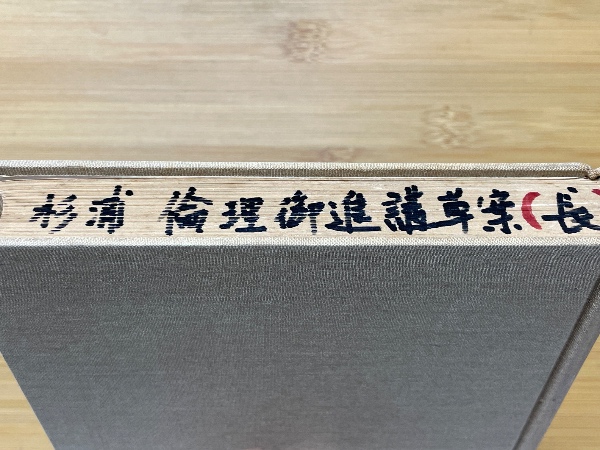 杉浦 倫理御進講草案(長)